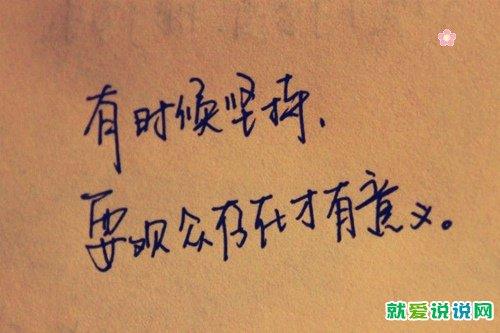 有时候坚持.
要观众存在才有意义。
就爱说说网